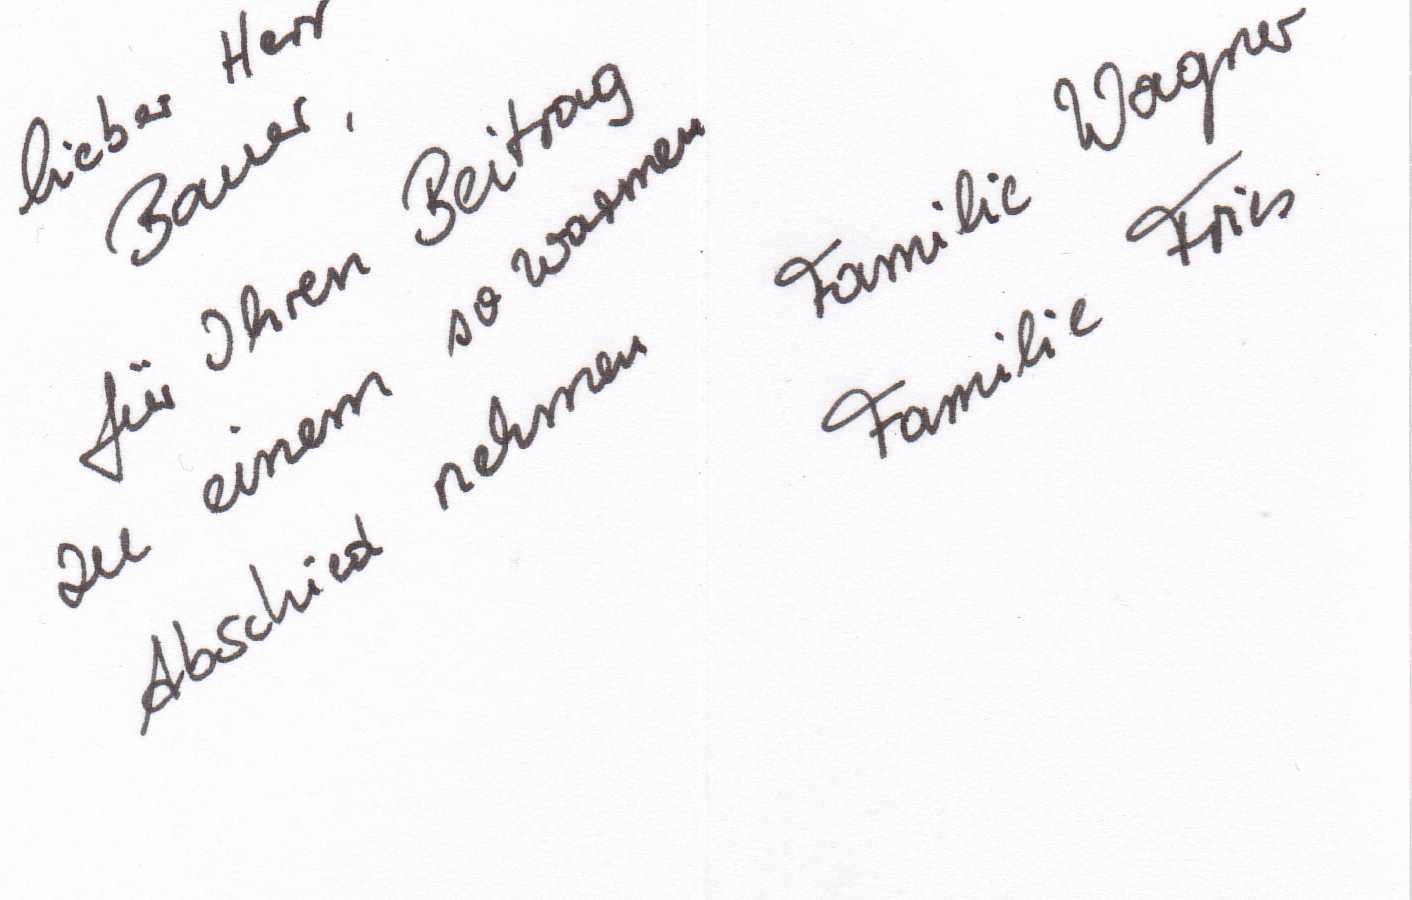 lieber Herr
Bauer,
für Ihren Beitrag
zu einem so warmen
Abschied nehmen
Familie Wagner
Familie Fries